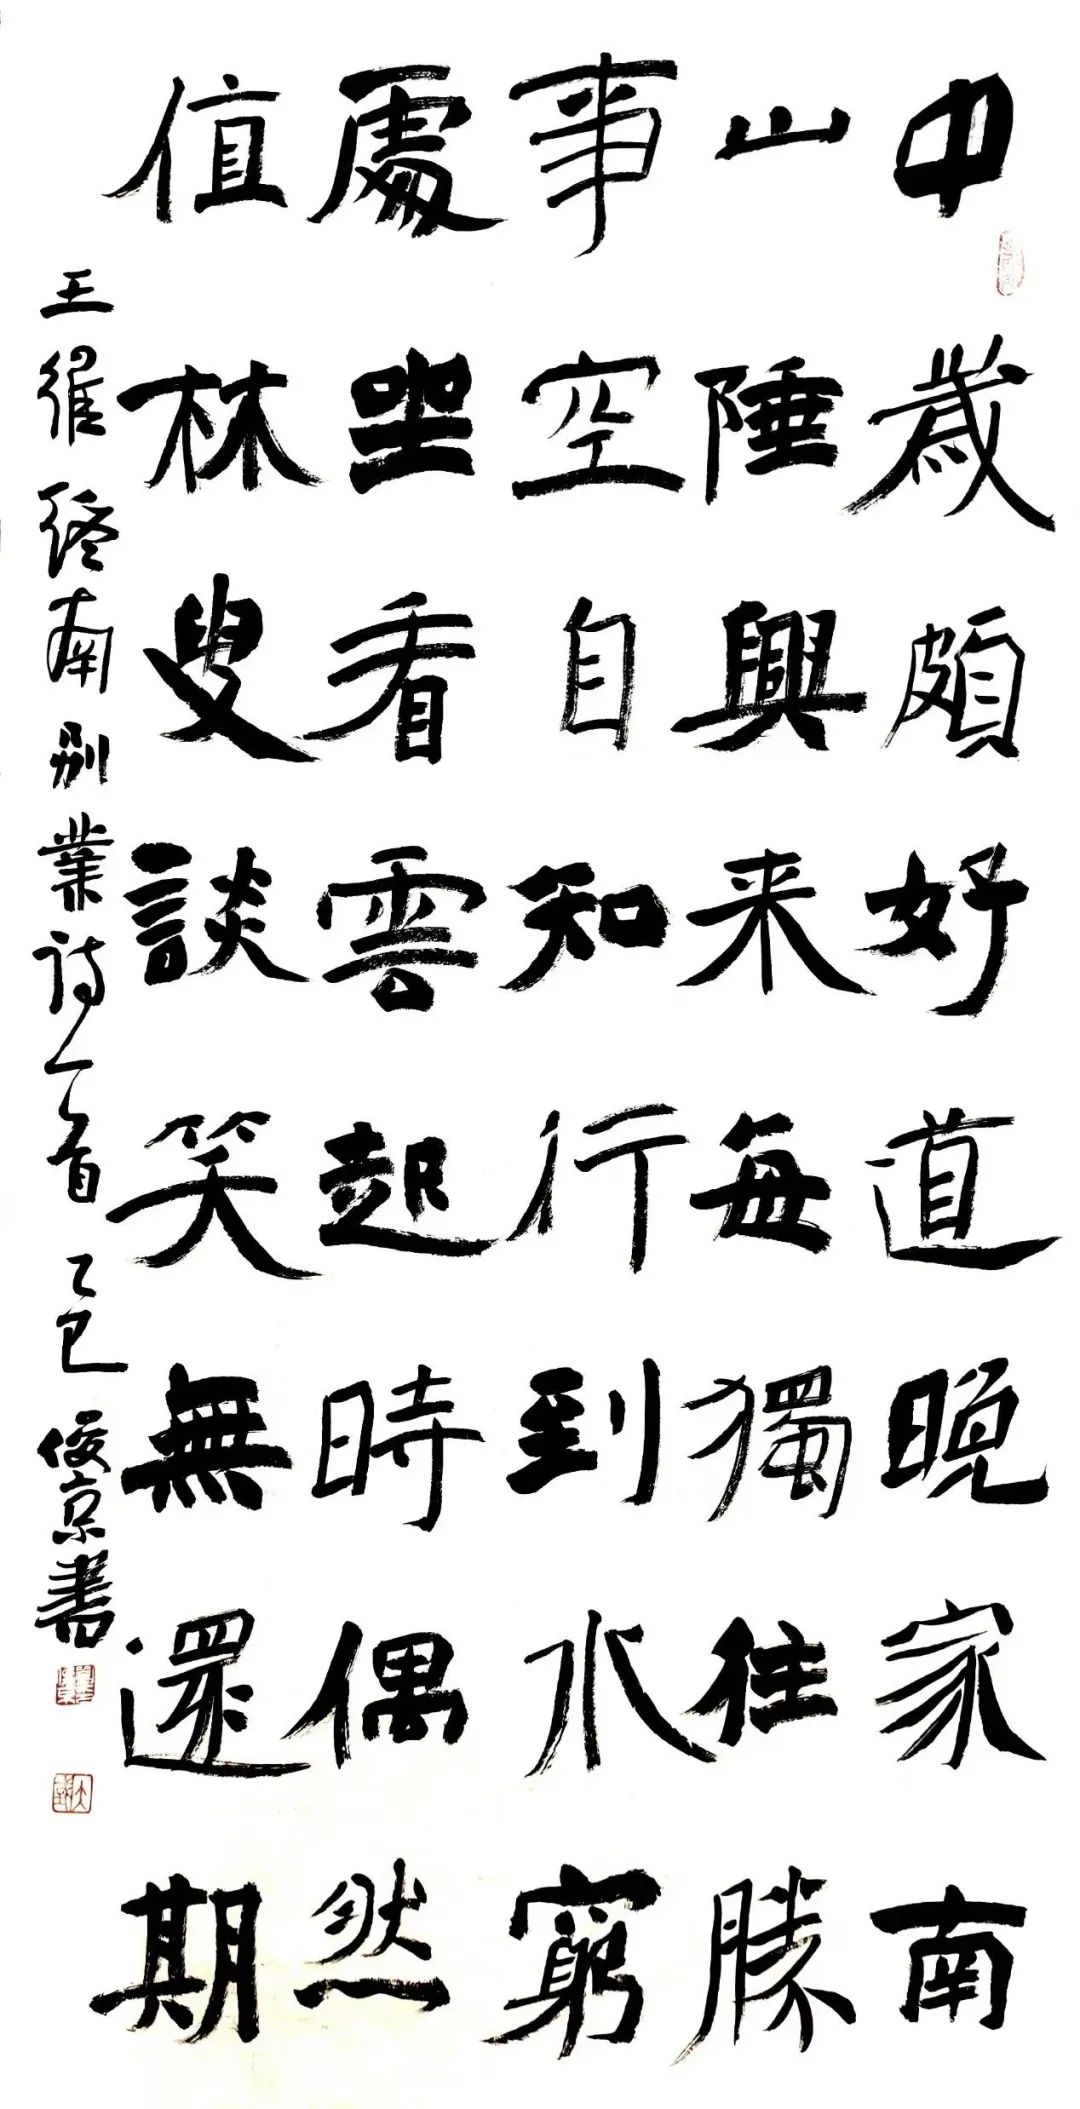 中歲頗好道晚家南
山陲興来每獨往勝
事空自知行到水窮
處坐看雲起時偶然
值林叟談笑無還期
王維終南別業诗一首 乙巳 俊京書